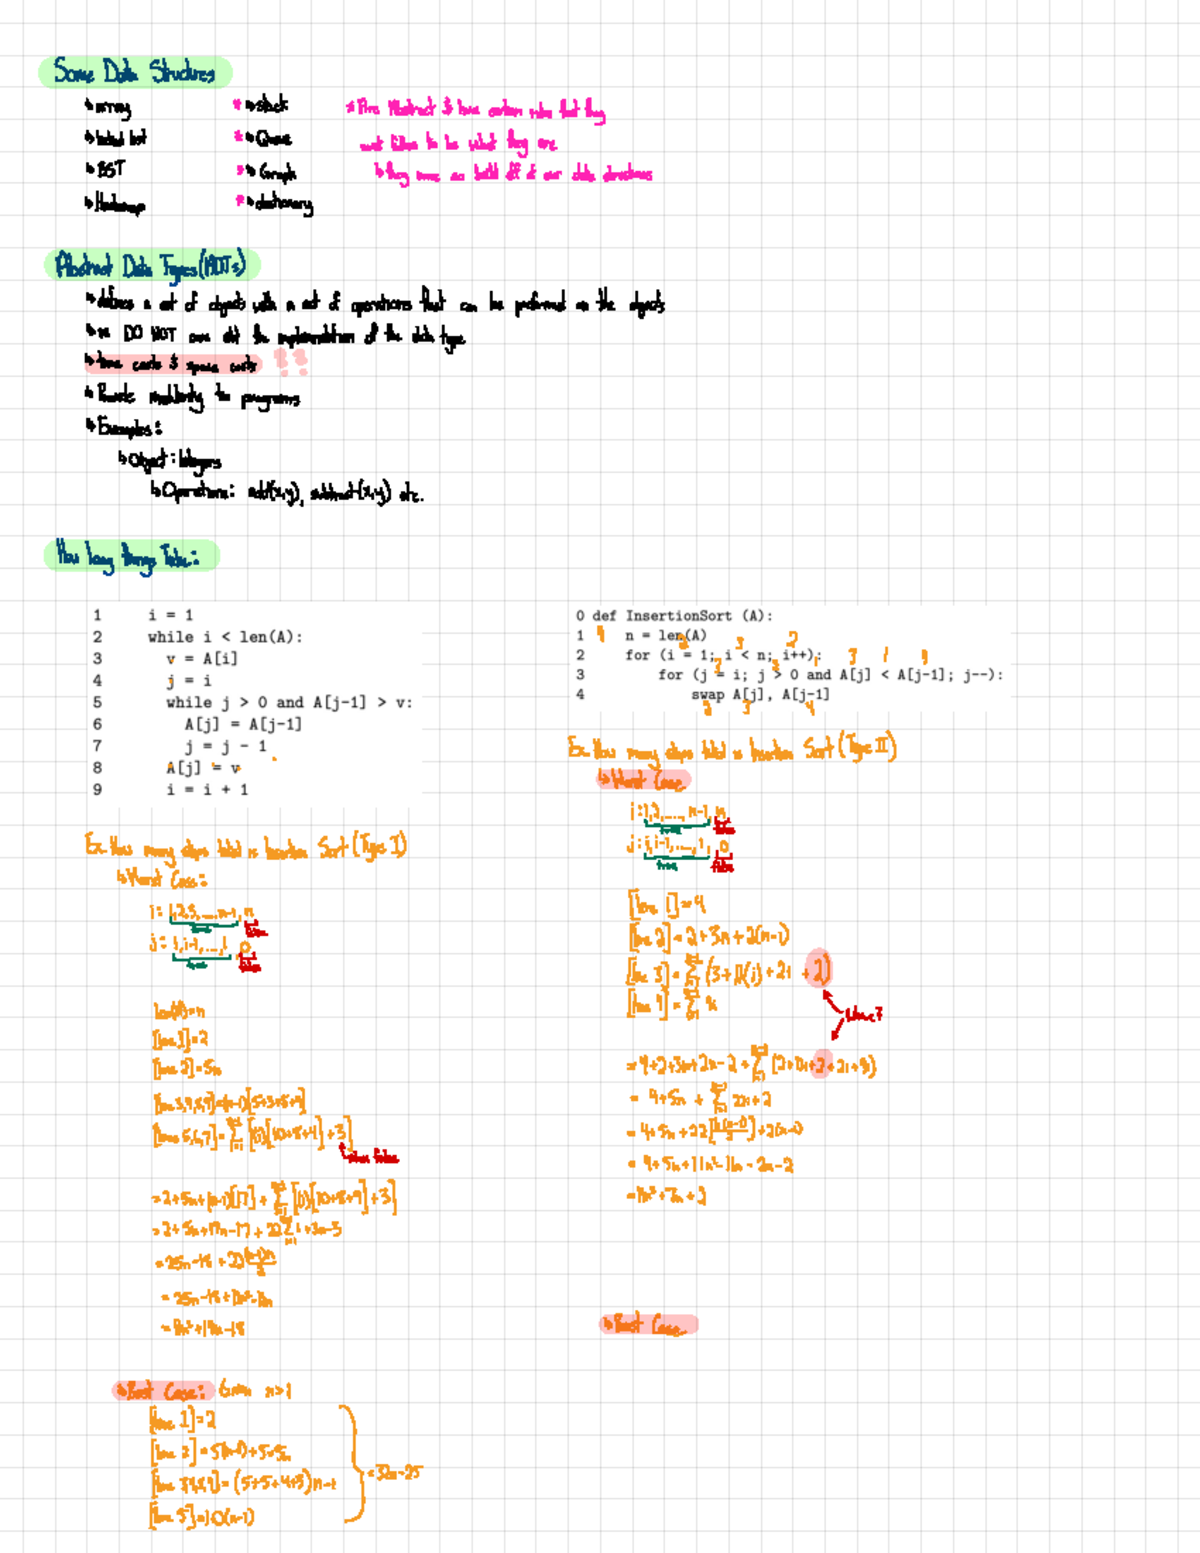 Some Data Structures
↳ array * ↳ stack * Are Abstract & have certain rules that they
↳ linked list * ↳ Queue must follow to be what they are
↳ BST * ↳ Graph ↳ they are build off of our data structures
↳ Hashmap * ↳ dictionary
Abstract Data Types (ADTs)
↳ defines a set of objects with a set of operations that can be preformed on the objects
↳ we DO NOT care abt the implementation of the data type
↳ time costs & space costs !!
↳ Provide modularity to programs
↳ Examples:
↳ Object: Integers
↳ Operations: add(x,y), subtract(x,y) etc.
How long things Take:
1 i = 1
2 while i < len(A):
3 v = A[i]
4 j = i
5 while j > 0 and A[j-1] > v:
6 A[j] = A[j-1]
7 j = j - 1
8 A[j] = v
9 i = i + 1
Ex. How many steps total is Insertion Sort (Type I)
↳ Worst Case:
i: 1,2,3,...,n-1, n
true false
j: i, i-1, ..., 1, 0
true false
len(A)=n
[line 1]=2
[line 2]=5n
[line 3,4,8,9]=(n-1)[5+3+5+4]
[lines 5,6,7]= Σ [(i)[10+8+4]+3]
when false
=2+5n+(n-1)[17]+ Σ [(i)[10+8+4]+3]
=2+5n+17n-17+22 Σ i+3n-3
=25n-18+22 (n-1)n/2
=25n-18+11n²-11n
=11n²+14n-18
↳ Best Case: Given n>1
[line 1]=2
[line 2]=5(n-1)+5=5n
[line 3,4,8,9]=(5+5+4+3)n-1
[line 5]=10(n-1)
=32n-25
0 def InsertionSort (A):
1 n = len(A)
2 for (i = 1; i < n; i++):
3 for (j = i; j > 0 and A[j] < A[j-1]; j--):
4 swap A[j], A[j-1]
Ex. How many steps total is Insertion Sort (Type II)
↳ Worst Case
i: 1,2,...., n-1, n
true false
j: i, i-1,...., 1, 0
true false
[line 1]=4
[line 2]=2+3n+2(n-1)
[line 3]= Σ (3+11(i)+2i+2)
[line 4]= Σ 9i
=4+2+3n+2n-2+ Σ [2+11i+2+2i+9i]
= 4+5n + Σ 22i+2
= 4+5n+22[n(n-1)/2]+2(n-1)
= 4+5n+11n²-11n-2n-2
↳ Best Case